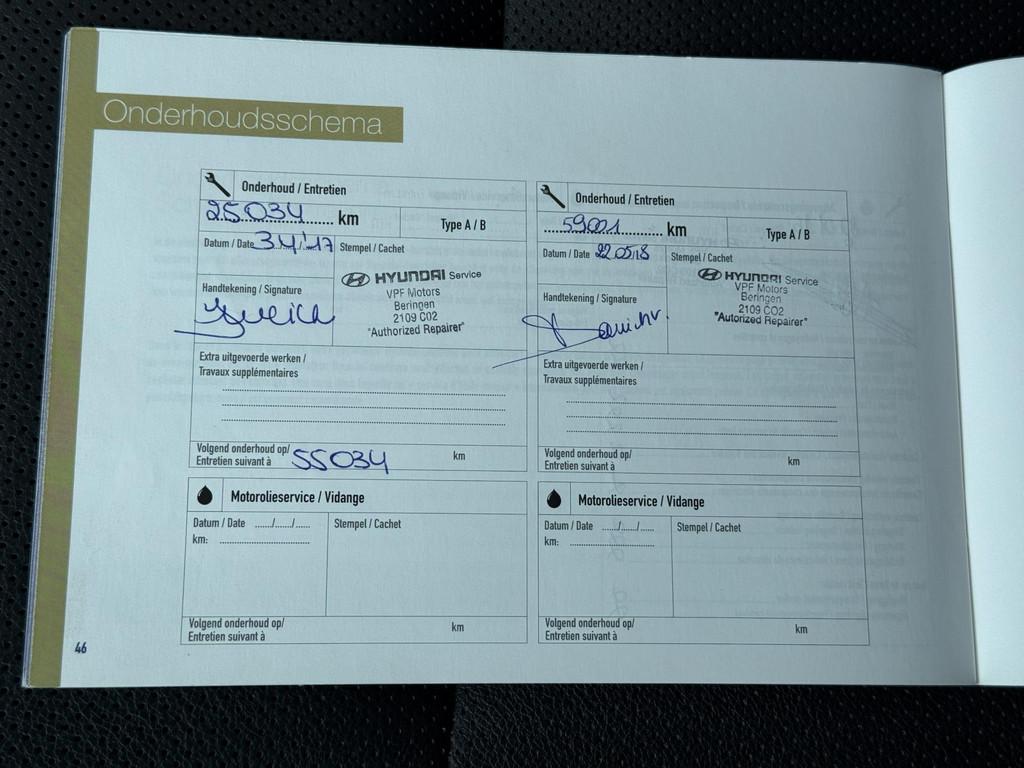 Onderhoudsschema
Onderhoud / Entretien
25034 km
Type A / B
Datum / Date 3/4/'17
Stempel / Cachet
HYUNDAI Service
VPF Motors
Beringen
2109 C02
"Authorized Repairer"
Handtekening / Signature
Extra uitgevoerde werken /
Travaux supplémentaires
Volgend onderhoud op/
Entretien suivant à 55034 km
Motorolieservice / Vidange
Datum / Date ....../....../......
Stempel / Cachet
km:
Volgend onderhoud op/
Entretien suivant à km
Onderhoud / Entretien
59001 km
Type A / B
Datum / Date 22/05/18
Stempel / Cachet
HYUNDAI Service
VPF Motors
Beringen
2109 C02
"Autorized Repairer"
Handtekening / Signature
Extra uitgevoerde werken /
Travaux supplémentaires
Volgend onderhoud op/
Entretien suivant à km
Motorolieservice / Vidange
Datum / Date ....../....../......
Stempel / Cachet
km:
Volgend onderhoud op/
Entretien suivant à km
46